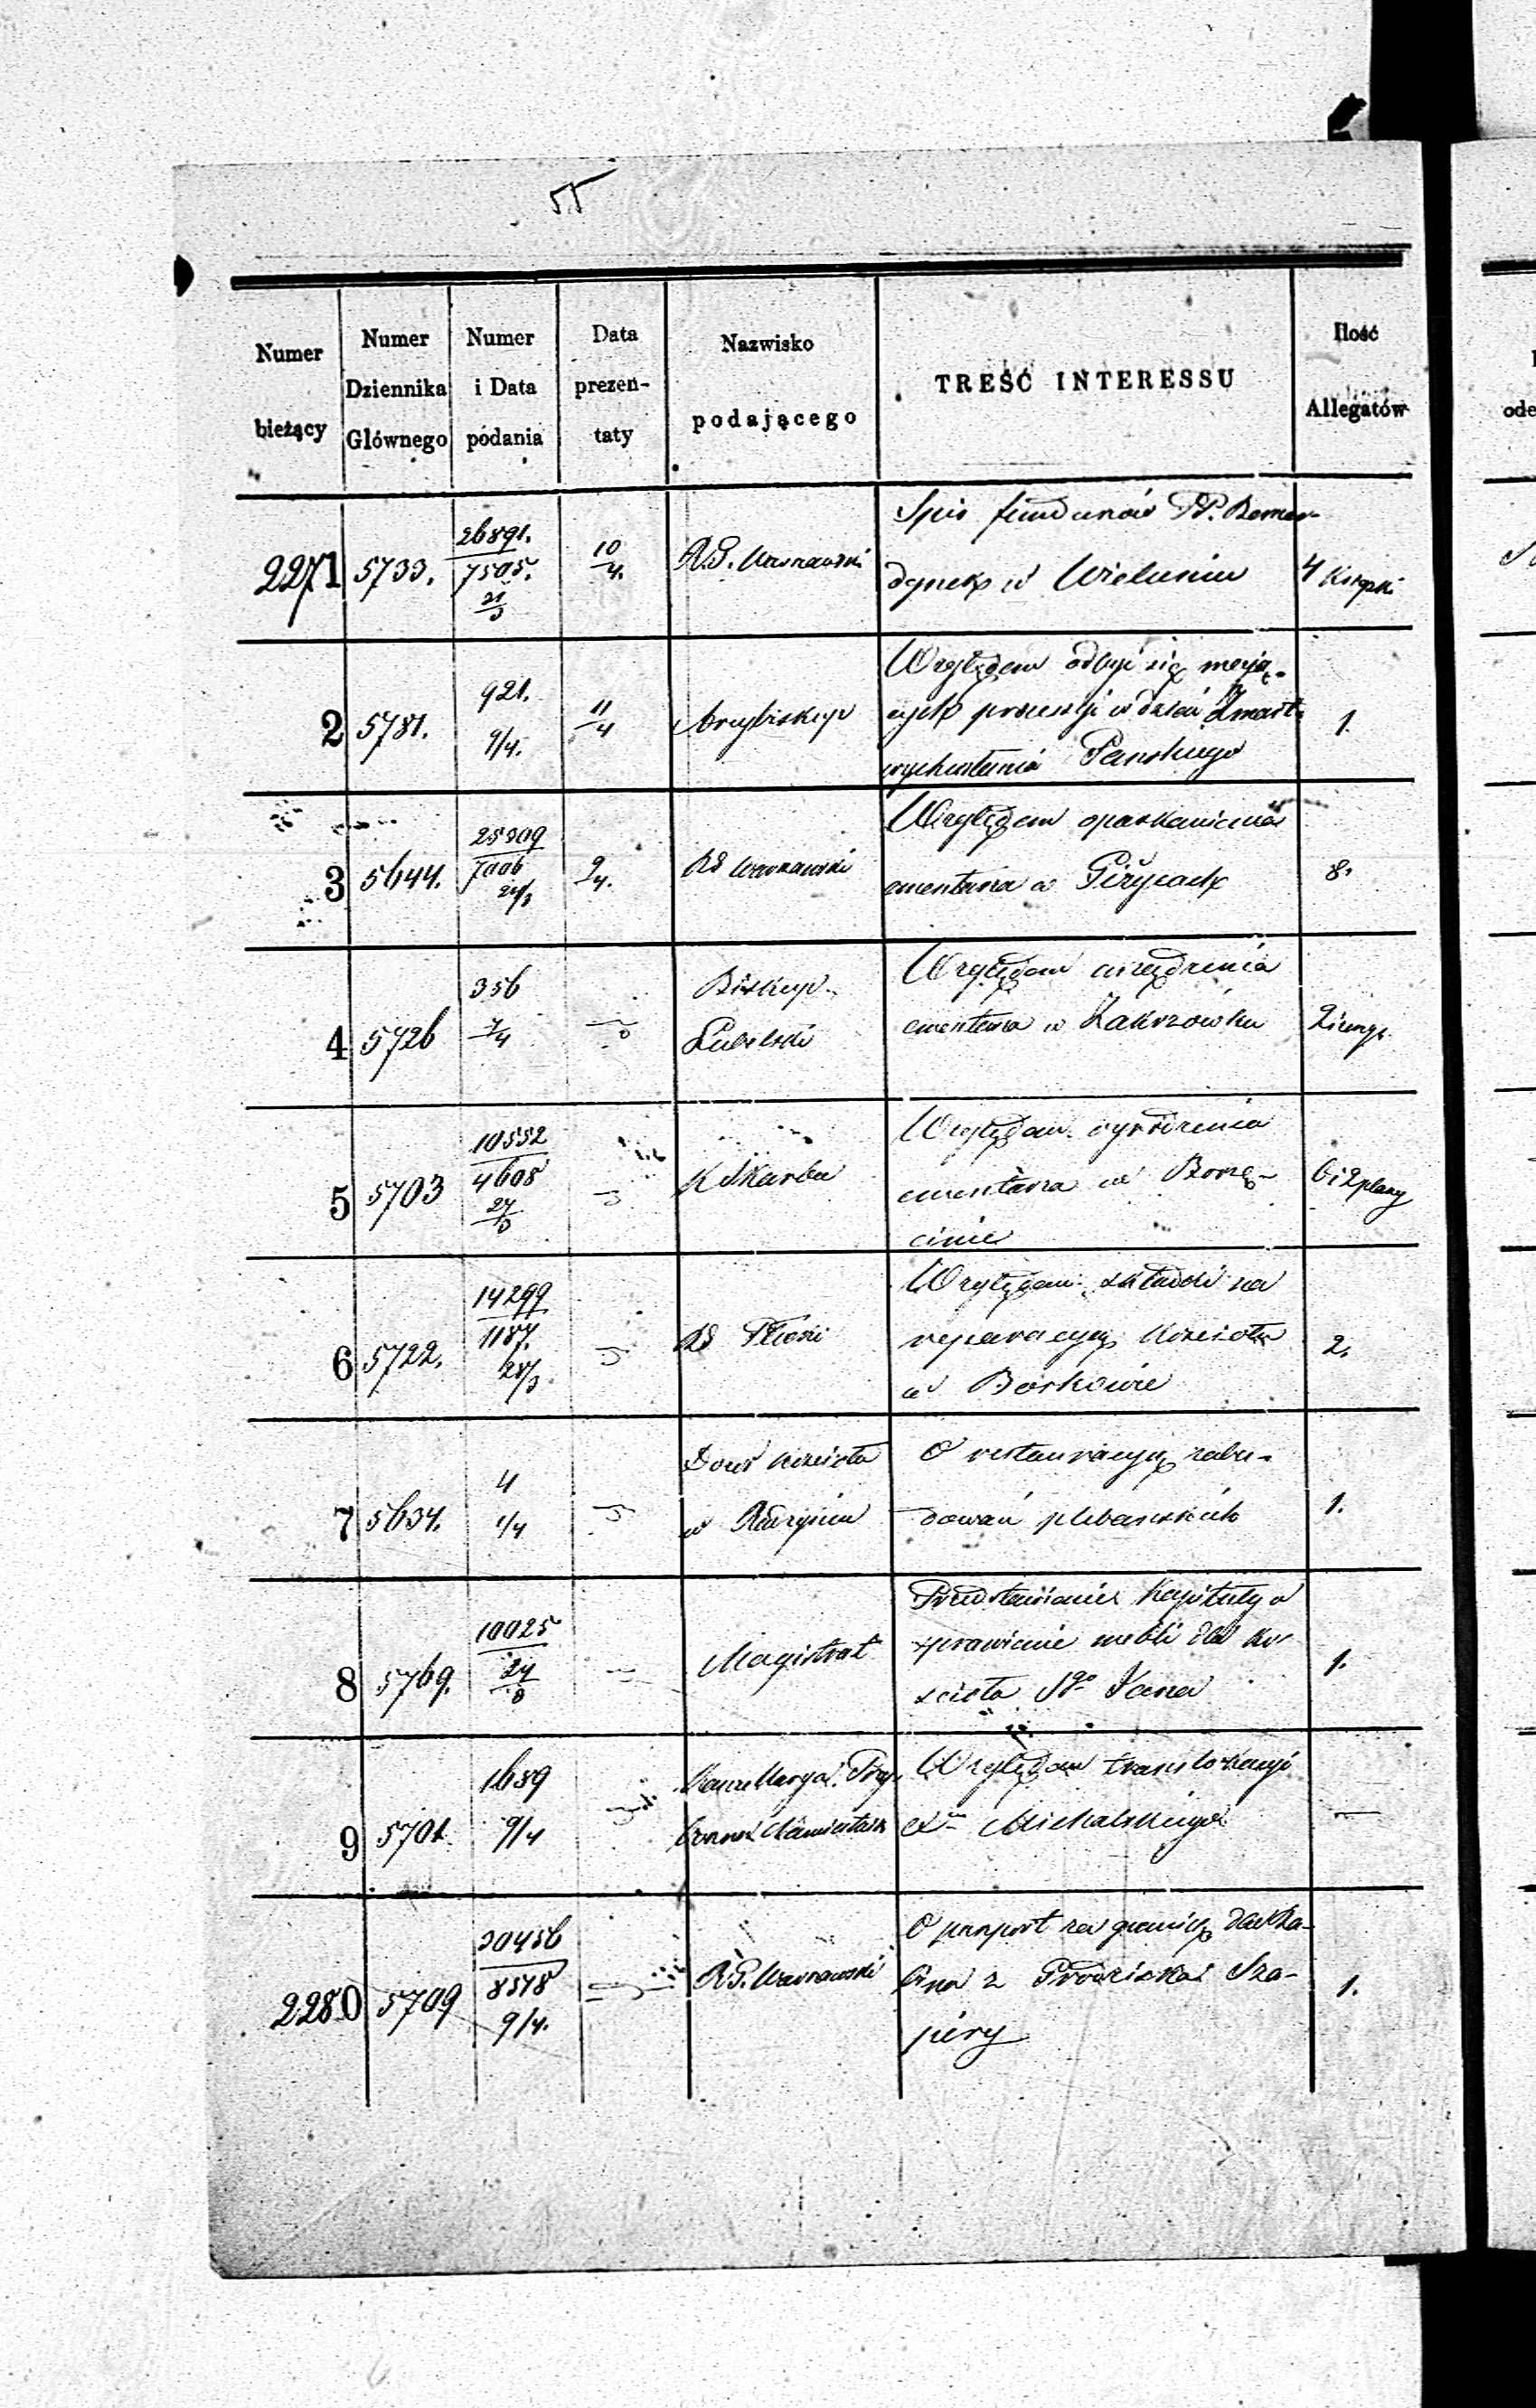 55
Numer bieżący | Numer Dziennika Głównego | Numer i Data podania | Data prezen- taty | Nazwisko podającego | TREŚĆ INTERESSU | Ilość Allegatów
2271 | 5733. | 26891. 7505. 21/3 | 10/4. | R.G. Warszawski | Spis funduszów PP. Bernar-
dynek w Wieluniu | 4 Książk.
2 | 5781. | 921. 9/4. | 11/4 | Arcybiskup | Względem odbyć się mają-
cych processji w dzień Zmart-
wychwstania Pańskiego | 1.
3 | 5644. | 25309 7006 24/3 | 9/4. | RG Warszawski | Względem oparkanienia
cmentarza w Giżycach | 8.
4 | 5726 | 356 7/4 | Biskup
Lubelski | Względem urządzenia
cmentarza w Zakrzówku
5 | 5703 | 10552 4608 27/3 | K Skarbu | Względem
cmentarza w Borzę-
cinie | 6 i 2 plany
6 | 5722. | 14299 1187. 28/3 | RG Płocki | Względem składki na
reparacyę Kościoła
w Borkowie | 2.
7 | 5634. | 4 1/4 | Dozór Kościoła
w Radzyniu | O restauracyę zabu-
dowań plebańskich | 1.
8 | 5769. | 10025 27/3 | Magistrat | Przedstawienie Kapituły o
sprawienie mebli dla Ko-
ścioła Sgo Jana | 1.
9 | 5701 | 1689 9/4 | Kancellarya Przy-
boczna Namiestnika | Względem translokacyi
Xa Michalskiego | —
2280 | 5709 | 30456 8578 9/4. | R.G. Warszawski | O passport za granicę dla Ra-
bina z Sza-
piry | 1.
ode